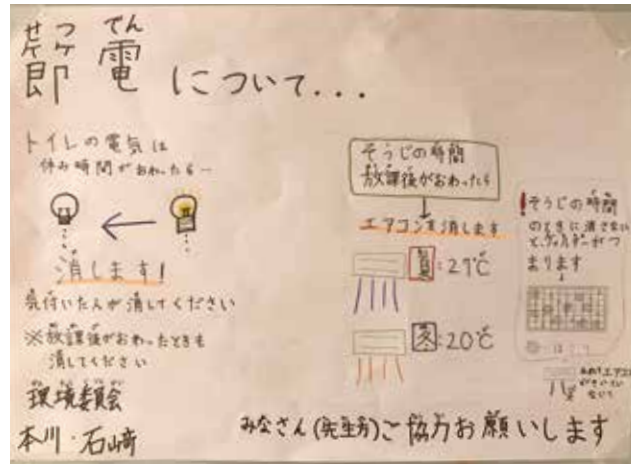 せつ でん
節電について...
トイレの電気は
休み時間がおわったら…
消します!
気付いた人が消してください
※放課後がおわったときも
消してください
環境委員会
本川・石崎
そうじの時間
放課後がおわったら
エアコンを消します
夏:27℃
冬:20℃
!そうじの時間
のときに消さない
と、フィルターがつ
まります
みなさん(先生方)ご協力お願いします